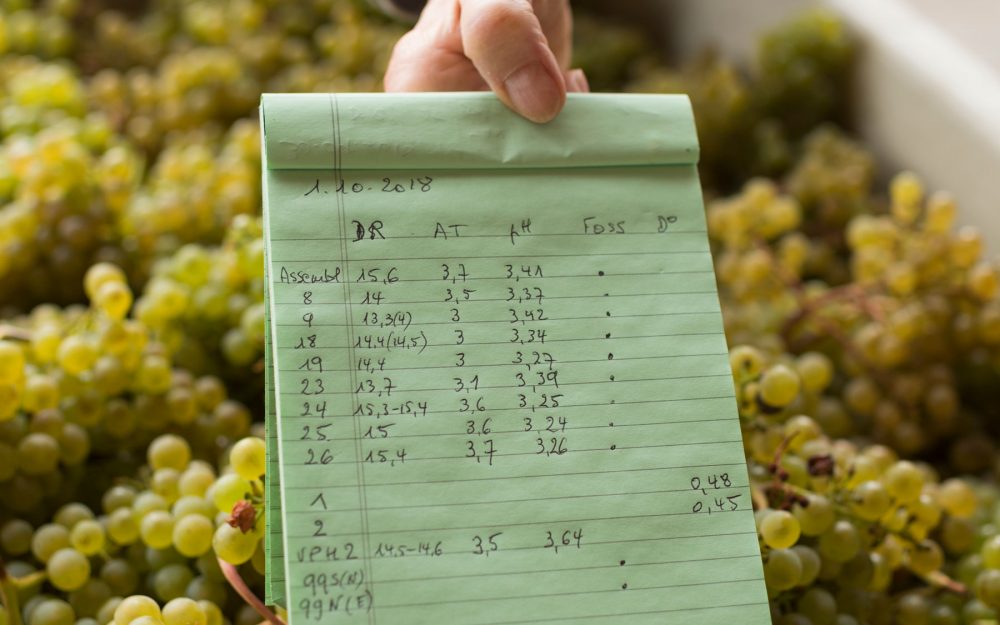 1.10.2018
DR AT pH Foss D°
Assembl 15,6 3,7 3,41 •
8 14 3,5 3,37 •
9 13,3(4) 3 3,42 •
18 14,4(14,5) 3 3,34 •
19 14,4 3 3,27 •
23 13,7 3,1 3,39 •
24 15,3-15,4 3,6 3,25 •
25 15 3,6 3,24 •
26 15,4 3,7 3,26 •
1 0,48
2 0,45
VPH2 14,5-14,6 3,5 3,64
99S(N) •
99N(E) •